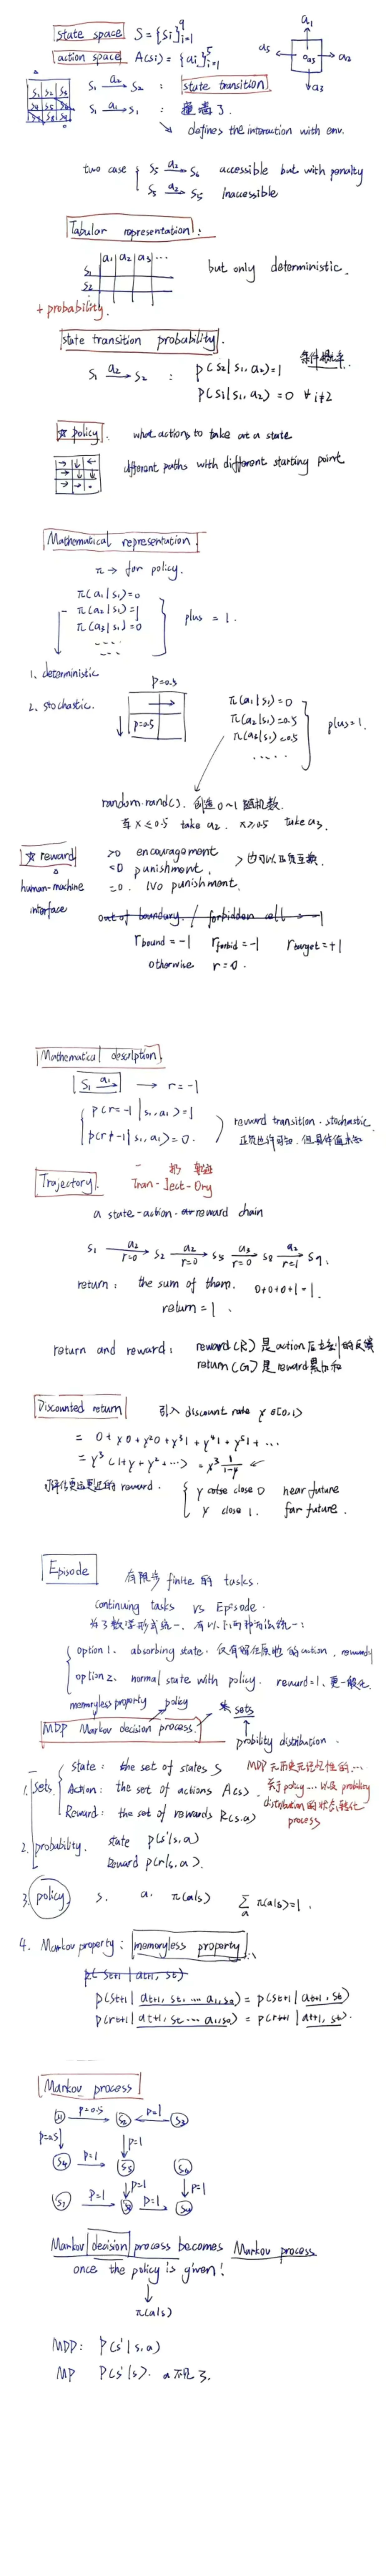 state space S = {si}⁹ᵢ₌₁
action space A(si) = {ai}⁵ᵢ₌₁
a₁
a₅ a₂
a₃
S₁ S₂ S₃
S₄ S₅ S₆
S₇ S₈ S₉
S₁ —a₂→ S₂ : state transition
S₁ —a₁→ S₁ : 撞墙了.
defines the interaction with env.
two case { S₅ —a₂→ S₆ accessible but with penalty
S₅ —a₂→ S₅ Inaccessible
Tabular representation:
a₁ | a₂ | a₃ | ...
S₁
S₂
but only deterministic.
+ probability.
state transition probability.
S₁ —a₂→ S₂ : p(S₂|S₁, a₂)=1 条件概率
p(Si|S₁, a₂)=0 ∀ i≠2
☆ policy: what actions to take at a state
different paths with different starting point
Mathematical representation.
π → for policy.
π(a₁|s₁)=0
π(a₂|s₁)=1
π(a₃|s₁)=0
.....
plus = 1.
1. deterministic
2. stochastic.
p=0.5
p=0.5
π(a₁|s₁)=0
π(a₂|s₁)=0.5
π(a₃|s₁)=0.5
.....
plus=1.
random.rand(). 创造 0~1 随机数.
x ≤ 0.5 take a₂. x≥0.5 take a₃.
☆ reward >0 encouragement
<0 punishment.
human-machine =0. No punishment.
interface
out of boundary / forbidden cell → -1
r bound = -1 r forbid = -1 r target = +1
otherwise r=0.
Mathematical desciption.
S₁ —a₁→ → r=-1
{ p(r=-1|s₁,a₁)=1
p(r≠-1|s₁,a₁)=0.
reward transition. stochastic
Trajectory.
Tran-Ject-Ory
a state-action-reward chain
S₁ —a₂ r=0→ S₂ —a₂ r=0→ S₅ —a₃ r=0→ S₈ —a₂ r=1→ S₉.
return: the sum of them. 0+0+0+1=1.
return=1.
return and reward: reward(R)是action后走到的反馈
return(G)是reward累加和
Discounted return 引入 discount rate γ∈[0,1)
= 0+γ0+γ²0+γ³1+γ⁴1+γ⁵1+...
= γ³(1+γ+γ²+...) = γ³ 1/(1-γ)
reward. { γ close 0 near future
γ close 1. far future.
Episode 有限步 finite 的 tasks.
continuing tasks vs Episode.
为了数学形式统一,
option 1. absorbing state. 仅有留在原地的action,
option 2. normal state with policy. reward=1, 更一般化.
memoryless property policy sets
MDP Markov decision process.
probility distribution.
1. sets { State: the set of states S
Action: the set of actions A(s).
Reward: the set of rewards R(s,a)
MDP
process
2. probability. state p(s'|s,a)
Reward p(r|s,a).
3. policy. s. a. π(a|s) Σₐ π(a|s)=1.
4. Markov property: memoryless property
p(st+1 | at+1, st)
p(st+1 | at+1, st, ... a₁,s₀) = p(st+1 | at+1, st)
p(rt+1 | at+1, st ... a₁,s₀) = p(rt+1 | at+1, st).
Markov process
S₁ p=0.5 S₂ p=1 S₃
p=0.5 p=1
S₄ p=1 S₅ S₆
p=1 p=1
S₇ p=1 S₈ p=1 S₉
Markov decision process becomes Markov process
once the policy is given!
π(a|s)
MDP: P(s'|s,a)
MP P(s'|s). a 不见了.